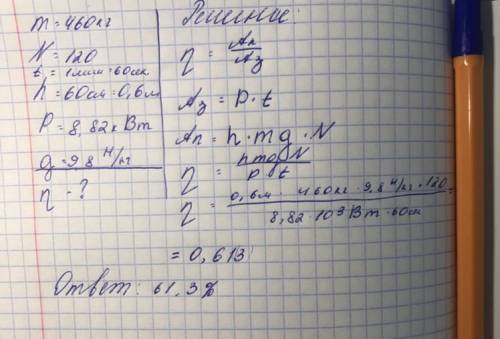 m = 460 кг
N = 120
t₁ = 1 мин = 60 сек
h = 60 см = 0,6 м
P = 8,82 кВт
g = 9,8 Н/кг
η - ?
Решение:
η = Aп/Aз
Aз = P · t
Aп = h · mg · N
η = hmgN/P · t
η = 0,6 м · 460 кг · 9,8 Н/кг · 120 / 8,82 · 10³ Вт · 60 см
= 0,613
Ответ: 61,3%